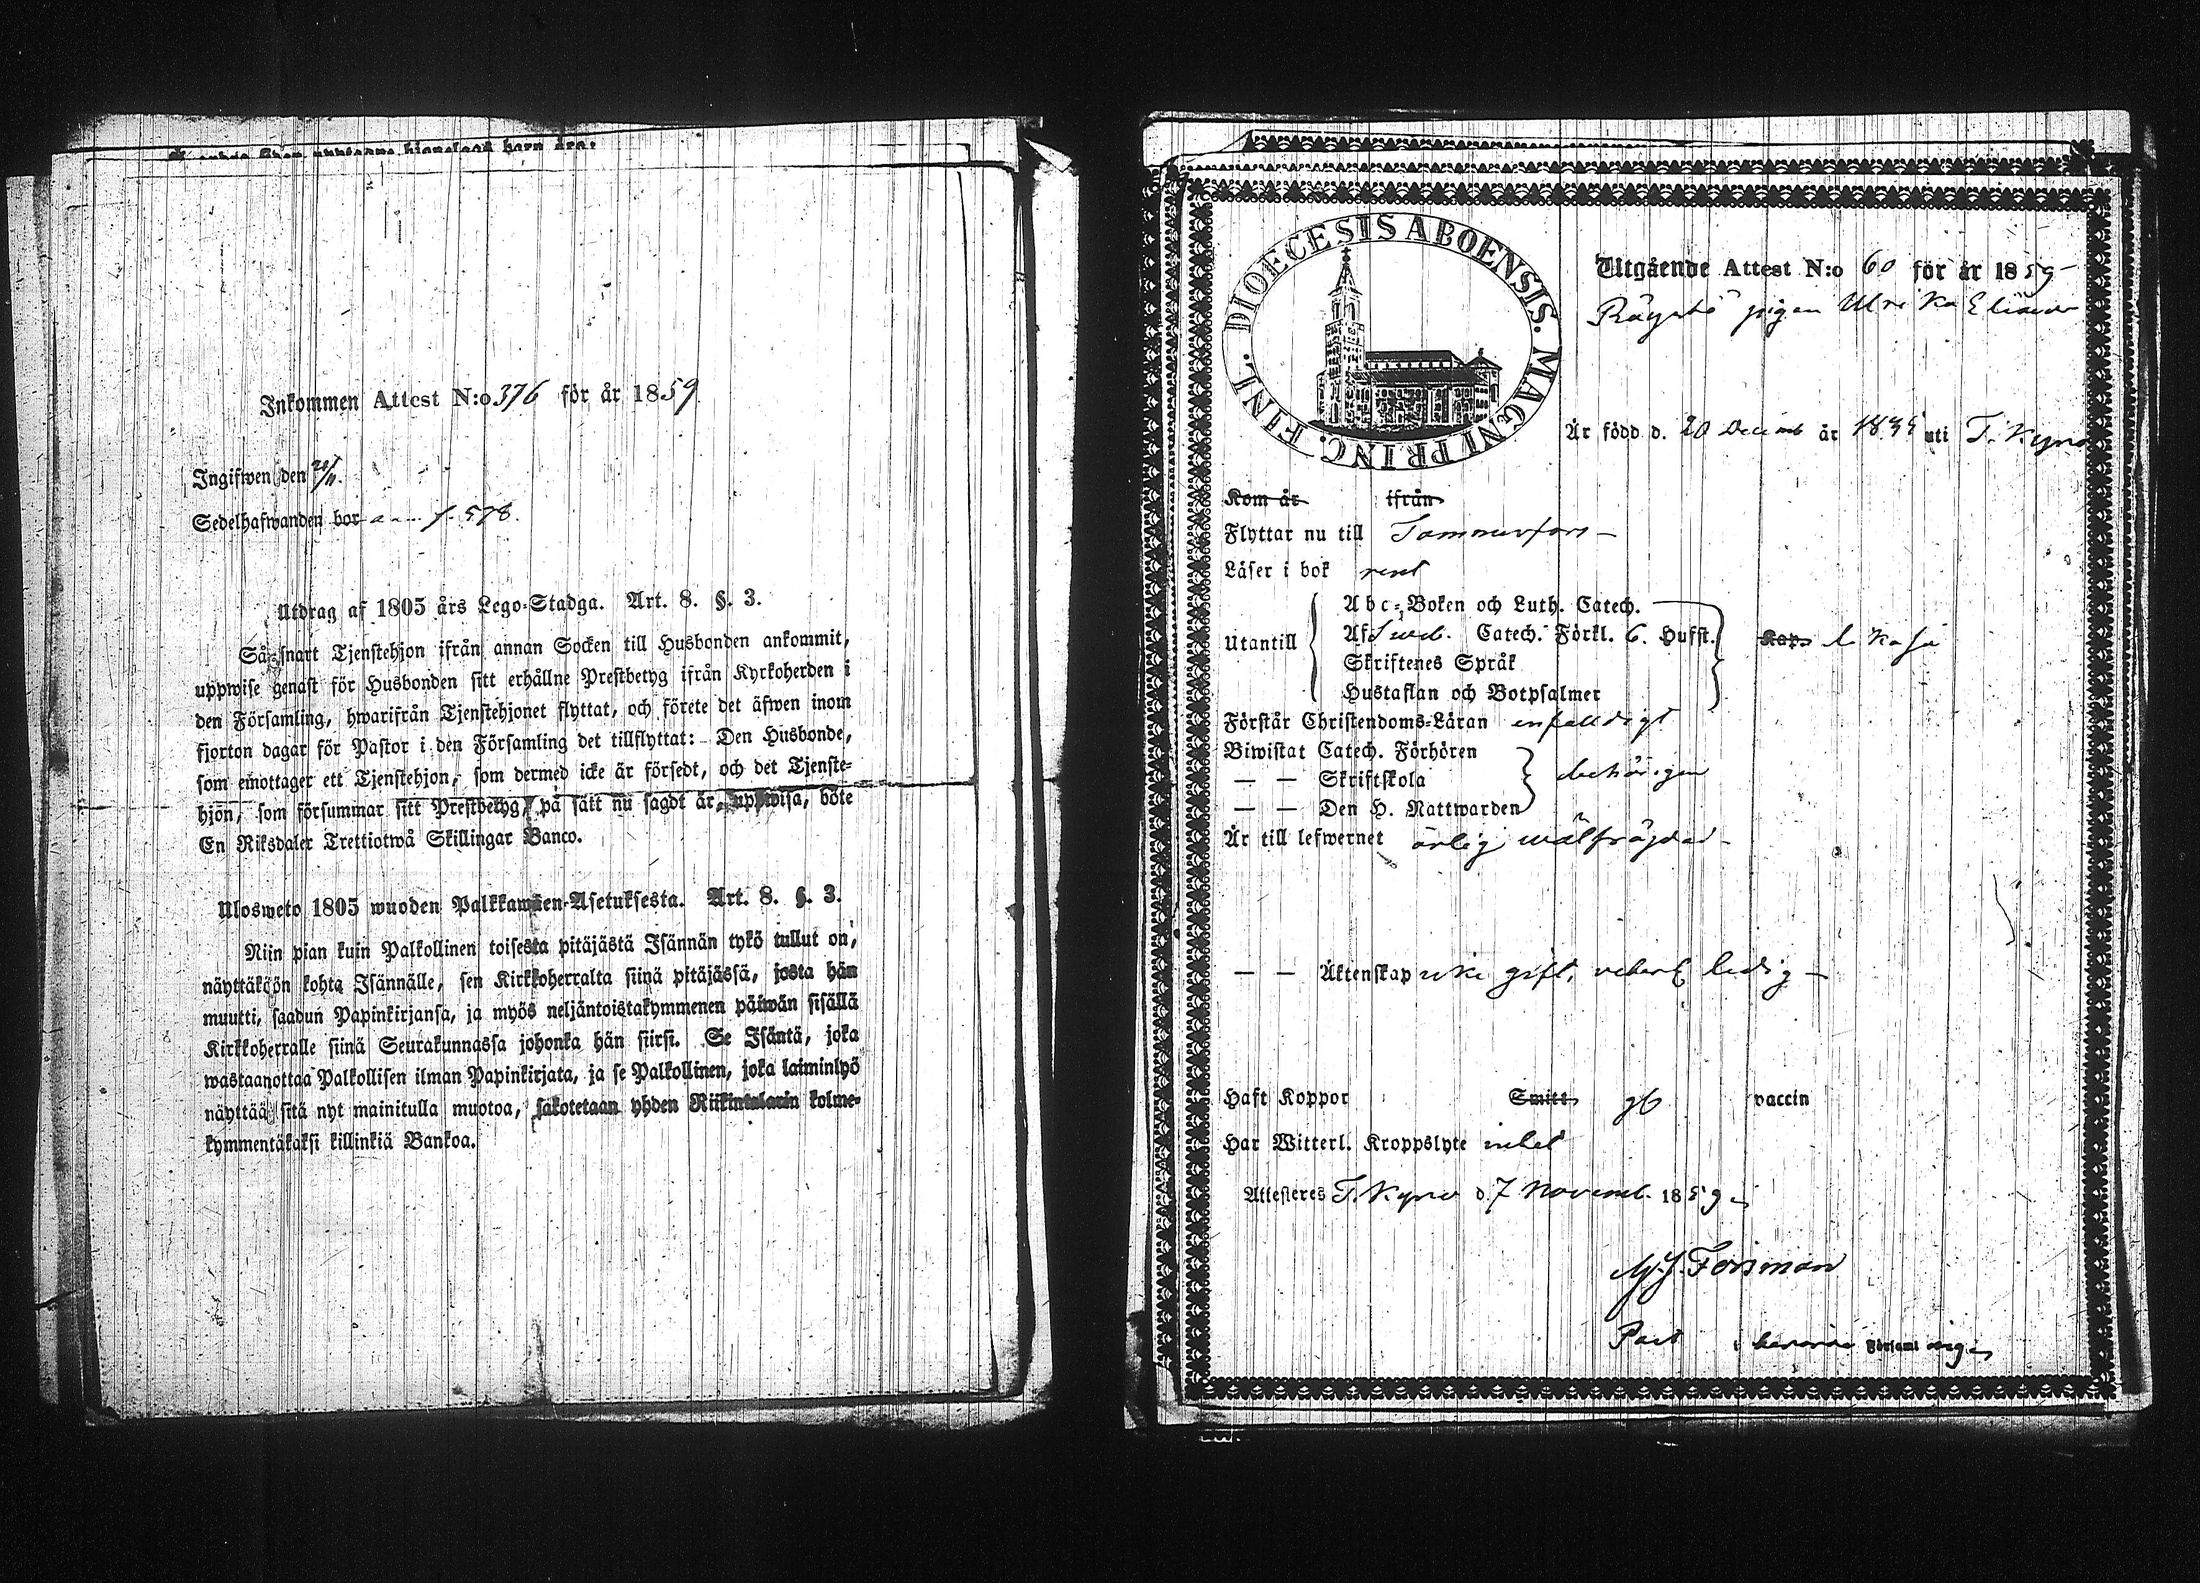 Inkommen Attest N:o 376 för år 1859
Ingifwen den 20/11.
Sedelhafwanden bor f. 578.
Utdrag af 1805 års Lego-Stadga. Art. 8. §. 3.
Så snart Tjenstehjon ifrån annan Socken till Husbonden ankommit,
uppwise genast för Husbonden sitt erhållne Prestbetyg ifrån Kyrkoherden i
den Församling, hwarifrån Tjenstehjonet flyttat, och förete det äfwen inom
fjorton dagar för Pastor i den Församling det tillflyttat: Den Husbonde,
som emottager ett Tjenstehjon, som dermed icke är försedt, och det Tjenste-
hjon, som försummar sitt Prestbetyg, på sätt nu sagdt är, uppwisa, böte
En Riksdaler Trettiotwå Skillingar Banco.
Ulosweto 1805 wuoden Palkkawäen-Asetuksesta. Art. 8. §. 3.
Niin pian kuin Palkollinen toisesta pitäjästä Isännän tykö tullut on,
näyttäköön kohta Isännälle, sen Kirkkoherralta siinä pitäjässä, josta hän
muutti, saadun Papinkirjansa, ja myös neljäntoistakymmenen päiwän sisällä
Kirkkoherralle siinä Seurakunnassa johonka hän siirsi. Se Isäntä, joka
wastaanottaa Palkollisen ilman Papinkirjata, ja se Palkollinen, joka laiminlyö
näyttää sitä nyt mainitulla muotoa, sakotetaan yhden Riikintalarin kolme-
kymmentäkaksi killinkiä Bankoa.
DIOECESIS ABOENSIS. MAGNI PRINC. FINL.
Utgående Attest N:o 60 för år 1859
pigan Ulrika
Är född d. 20 Decemb år 1835 uti T. Kyro
Kom år ifrån
Flyttar nu till Tammerfors
Läser i bok rent
Utantill
Abc-Boken och Luth. Catech.
Af Sweb. Catech. Förkl. 6. Hufst.
Skriftenes Språk
Hustaflan och Botpsalmer
Kap.
Förstår Christendoms-Läran enfaldigt
Biwistat Catech. Förhören
— — Skriftskola
— — Den H. Nattwarden
behörigen
Är till lefwernet ärlig wälfrägdad
— — Äktenskap icke gift, ledig
Haft Koppor Smitt gt vaccin
Har Witterl. Kroppslyte intet
Attesteras T. Kyro d. 7 Novemb. 1859
M. J. Forsman
Past i Församl